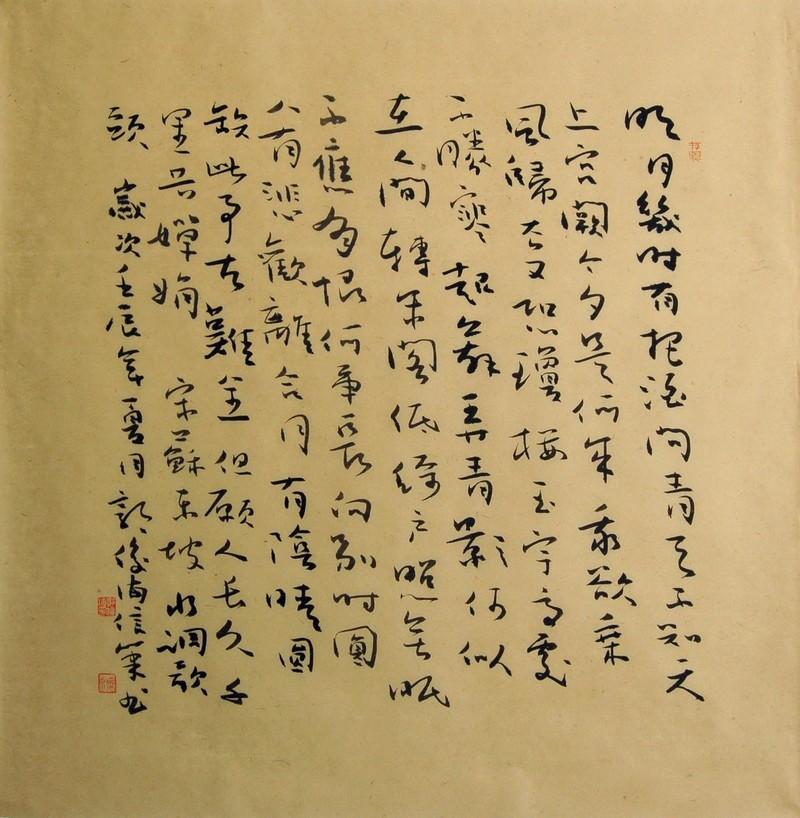 明月幾時有把酒問青天不知天
上宮闕今夕是何年我欲乘
風歸去又恐瓊樓玉宇高處
不勝寒起舞弄青影何似
在人間轉朱閣低綺户照無眠
不應有恨何事長向別時圓
人有悲歡離合月有陰晴圓
缺此事古難全但願人長久千
里共嬋娟 宋蘇東坡水調歌
頭 歲次壬辰年夏月 信筆書